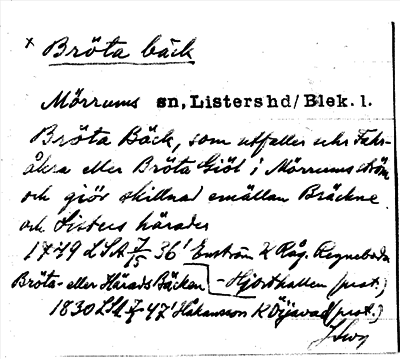 × Bröta bäck
Mörrums sn, Listers hd/Blek. l.
Bröta Bäck, som utfaller uhr
åkra eller Bröta Giöl i Mörrums ström
och giör skillnad emällan Bräckne
och Listers härader
1749 LSA 36' Enström K Råg. Regneboda
Bröta- eller Härads Bäcken - Hjorthallen (prot.)
1830 LSA 47' Håkansson K (prot.)